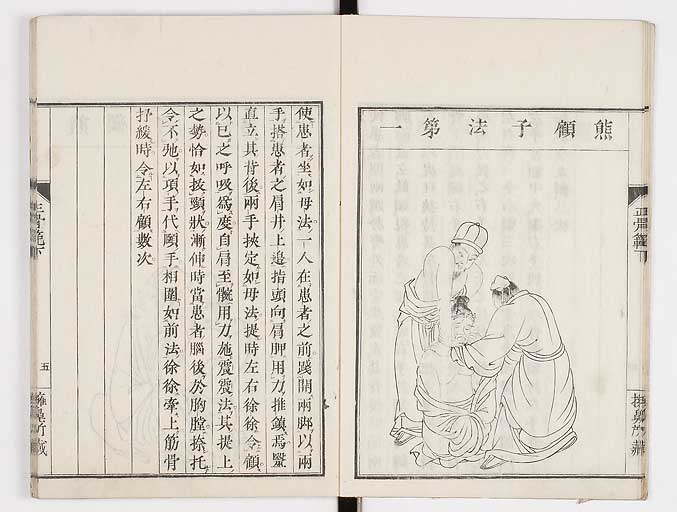 熊顧子法第一
使患者坐如母法一人在患者之前踐開兩脚以兩
手搭患者之肩井上邊指頭向肩胛用力推鎮焉毉
直立其背後兩手挾定如母法提時左右徐徐令顧
以已之呼吸爲度自肩至髖用力施震震法其提上
之勢恰如拔頸狀漸伸時當患者腦後於胸膛捺托
令不弛以項手代頤手相圍如前法徐徐牽上筋骨
抒緩時令左右顧數次
正骨範下
五